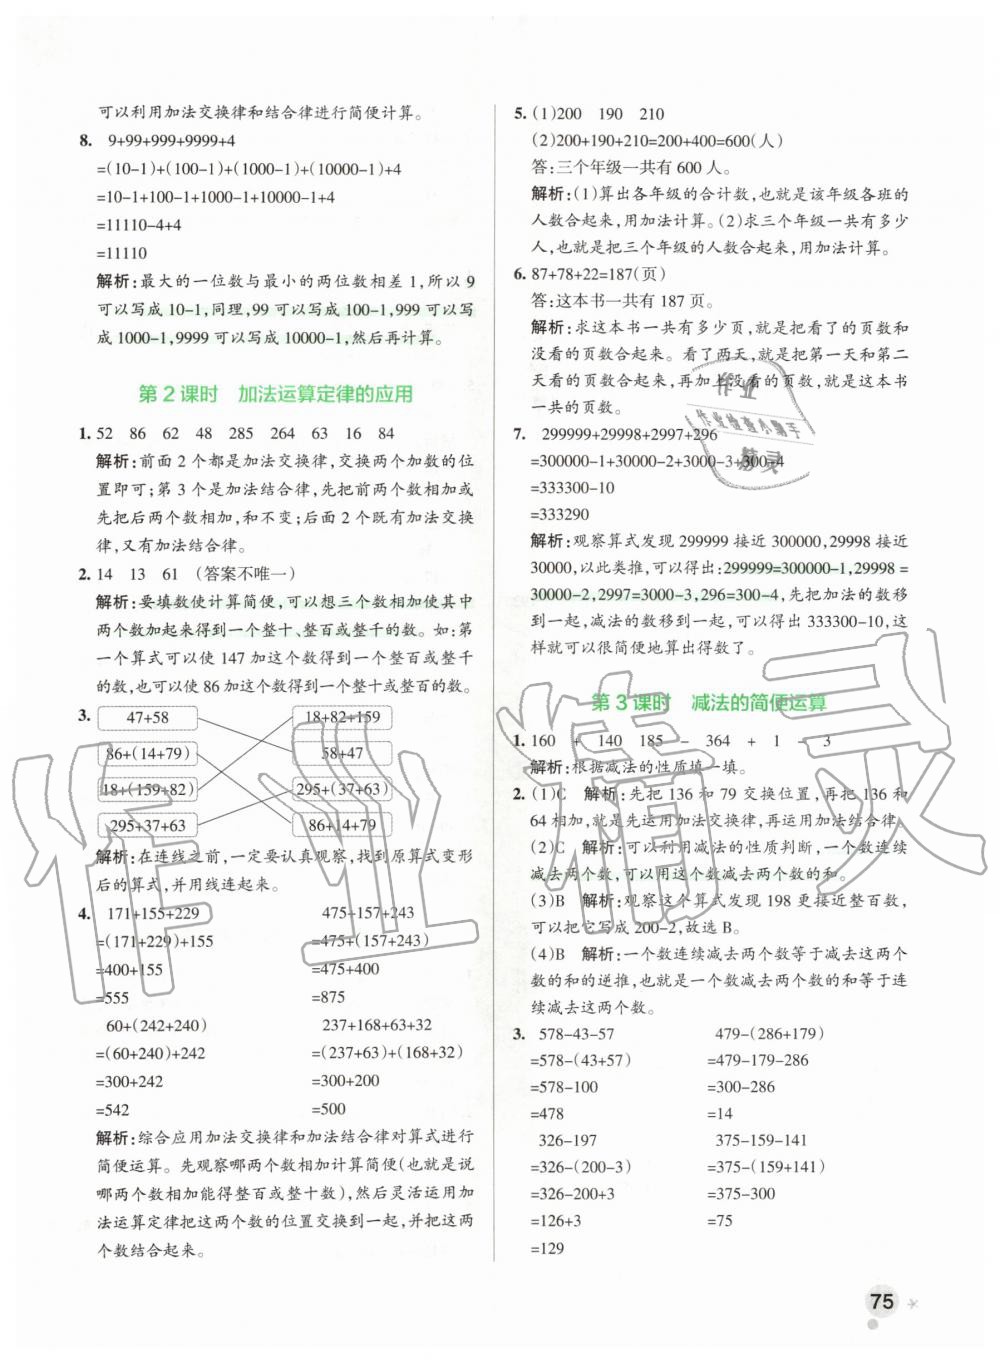 可以利用加法交换律和结合律进行简便计算。
8. 9+99+999+9999+4
=(10-1)+(100-1)+(1000-1)+(10000-1)+4
=10-1+100-1+1000-1+10000-1+4
=11110-4+4
=11110
解析:最大的一位数与最小的两位数相差 1,所以 9
可以写成 10-1,同理,99 可以写成 100-1,999 可以写
成 1000-1,9999 可以写成 10000-1,然后再计算。
第 2 课时 加法运算定律的应用
1. 52 86 62 48 285 264 63 16 84
解析:前面 2 个都是加法交换律,交换两个加数的位
置即可;第 3 个是加法结合律,先把前两个数相加或
先把后两个数相加,和不变;后面 2 个既有加法交换
律,又有加法结合律。
2. 14 13 61 (答案不唯一)
解析:要填数使计算简便,可以想三个数相加使其中
两个数加起来得到一个整十、整百或整千的数。如:第
一个算式可以使 147 加这个数得到一个整百或整千
的数,也可以使 86 加这个数得到一个整十或整百的数。
3. 47+58 18+82+159
86+(14+79) 58+47
18+(159+82) 295+(37+63)
295+37+63 86+14+79
解析:在连线之前,一定要认真观察,找到原算式变形
后的算式,并用线连起来。
4. 171+155+229 475+157+243
=(171+229)+155 =475+(157+243)
=400+155 =475+400
=555 =875
60+(242+240) 237+168+63+32
=(60+240)+242 =(237+63)+(168+32)
=300+242 =300+200
=542 =500
解析:综合应用加法交换律和加法结合律对算式进行
简便运算。先观察哪两个数相加计算简便(也就是说
哪两个数相加能得整百或整十数),然后灵活运用加
法运算定律把这两个数的位置交换到一起,并把这两
个数结合起来。
5. (1)200 190 210
(2)200+190+210=200+400=600(人)
答:三个年级一共有 600 人。
解析:(1)算出各年级的合计数,也就是该年级各班的
人数合起来,用加法计算。(2)求三个年级一共有多少
人,也就是把三个年级的人数合起来,用加法计算。
6. 87+78+22=187(页)
答:这本书一共有 187 页。
解析:求这本书一共有多少页,就是把看了的页数和
没看的页数合起来。看了两天,就是把第一天和第二
天看的页数合起来,再加上没看的页数,就是这本书
一共的页数。
7. 299999+29998+2997+296
=300000-1+30000-2+3000-3+300-4
=333300-10
=333290
解析:观察算式发现 299999 接近 300000,29998 接近
30000,以此类推,可以得出:299999=300000-1,29998=
30000-2,2997=3000-3,296=300-4,先把加法的数移
到一起,减法的数移到一起,可以得出 333300-10,这
样就可以很简便地算出得数了。
第 3 课时 减法的简便运算
1. 160 + 140 185 - 364 + 1 - 3
解析:根据减法的性质填一填。
2. (1)C 解析:先把 136 和 79 交换位置,再把 136 和
64 相加,就是先运用加法交换律,再运用加法结合律
(2)C 解析:可以利用减法的性质判断,一个数连续
减去两个数,可以用这个数减去两个数的和。
(3)B 解析:观察这个算式发现 198 更接近整百数,
可以把它写成 200-2,故选 B。
(4)B 解析:一个数连续减去两个数等于减去这两个
数的和的逆推,也就是一个数减去两个数的和等于连
续减去这两个数。
3. 578-43-57 479-(286+179)
=578-(43+57) =479-179-286
=578-100 =300-286
=478 =14
326-197 375-159-141
=326-(200-3) =375-(159+141)
=326-200+3 =375-300
=126+3 =75
=129
75
作业精灵
作业检查小助手